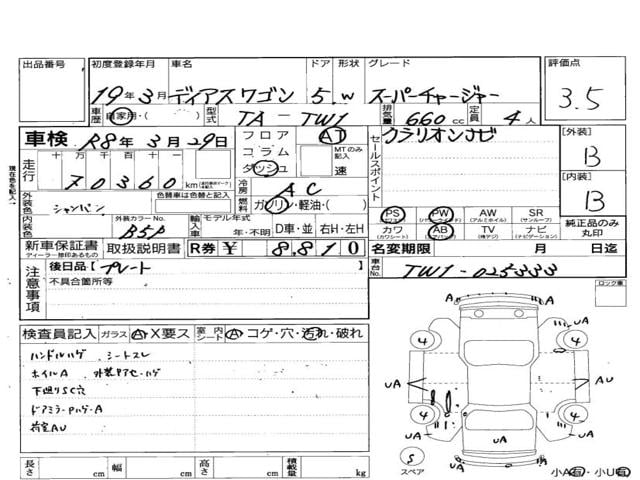 出品番号 初度登録年月 車名 ドア 形状 グレード 評価点
19年3月 ディアスワゴン 5.W スーパーチャージャー 3.5
車歴 自家用・( ) 型式 TA-TW1 排気量 660cc 定員 4人
車検 R8年3月29日 フロア AT クラリオンナビ [外装]
コラム MTのみ記入 B
走行 十万千百十一 ダッシュ 速 セールスポイント
70360km 冷房 AC [内装]
外装色 シャンパン 色替車は色替と記入 燃料 ガソリン・軽油・( ) PS AW SR B
内装色 外装カラーNo. B5P 輸入車 モデル年式 年・不明 D車・並 右H・左H カワ AB TV ナビ 純正品のみ丸印
新車保証書 取扱説明書 R券 ¥ 8,810 名変期限 月 日迄
注意事項 後日品【プレート】 車台No. TW1-025333
不具合箇所等 ロック車
検査員記入 ガラス A・X要ス 室内シート A コゲ・穴・汚れ・破れ
ハンドルハゲ シートスレ
ホイルA
下廻りSC穴
ドアミラーPハゲ・A
荷室AU
長さ cm 幅 cm 高さ cm 積載量 kg
A A UA
4 4
UA AU
4 4
UA UA UA
S スペア UA 小A有・小U有